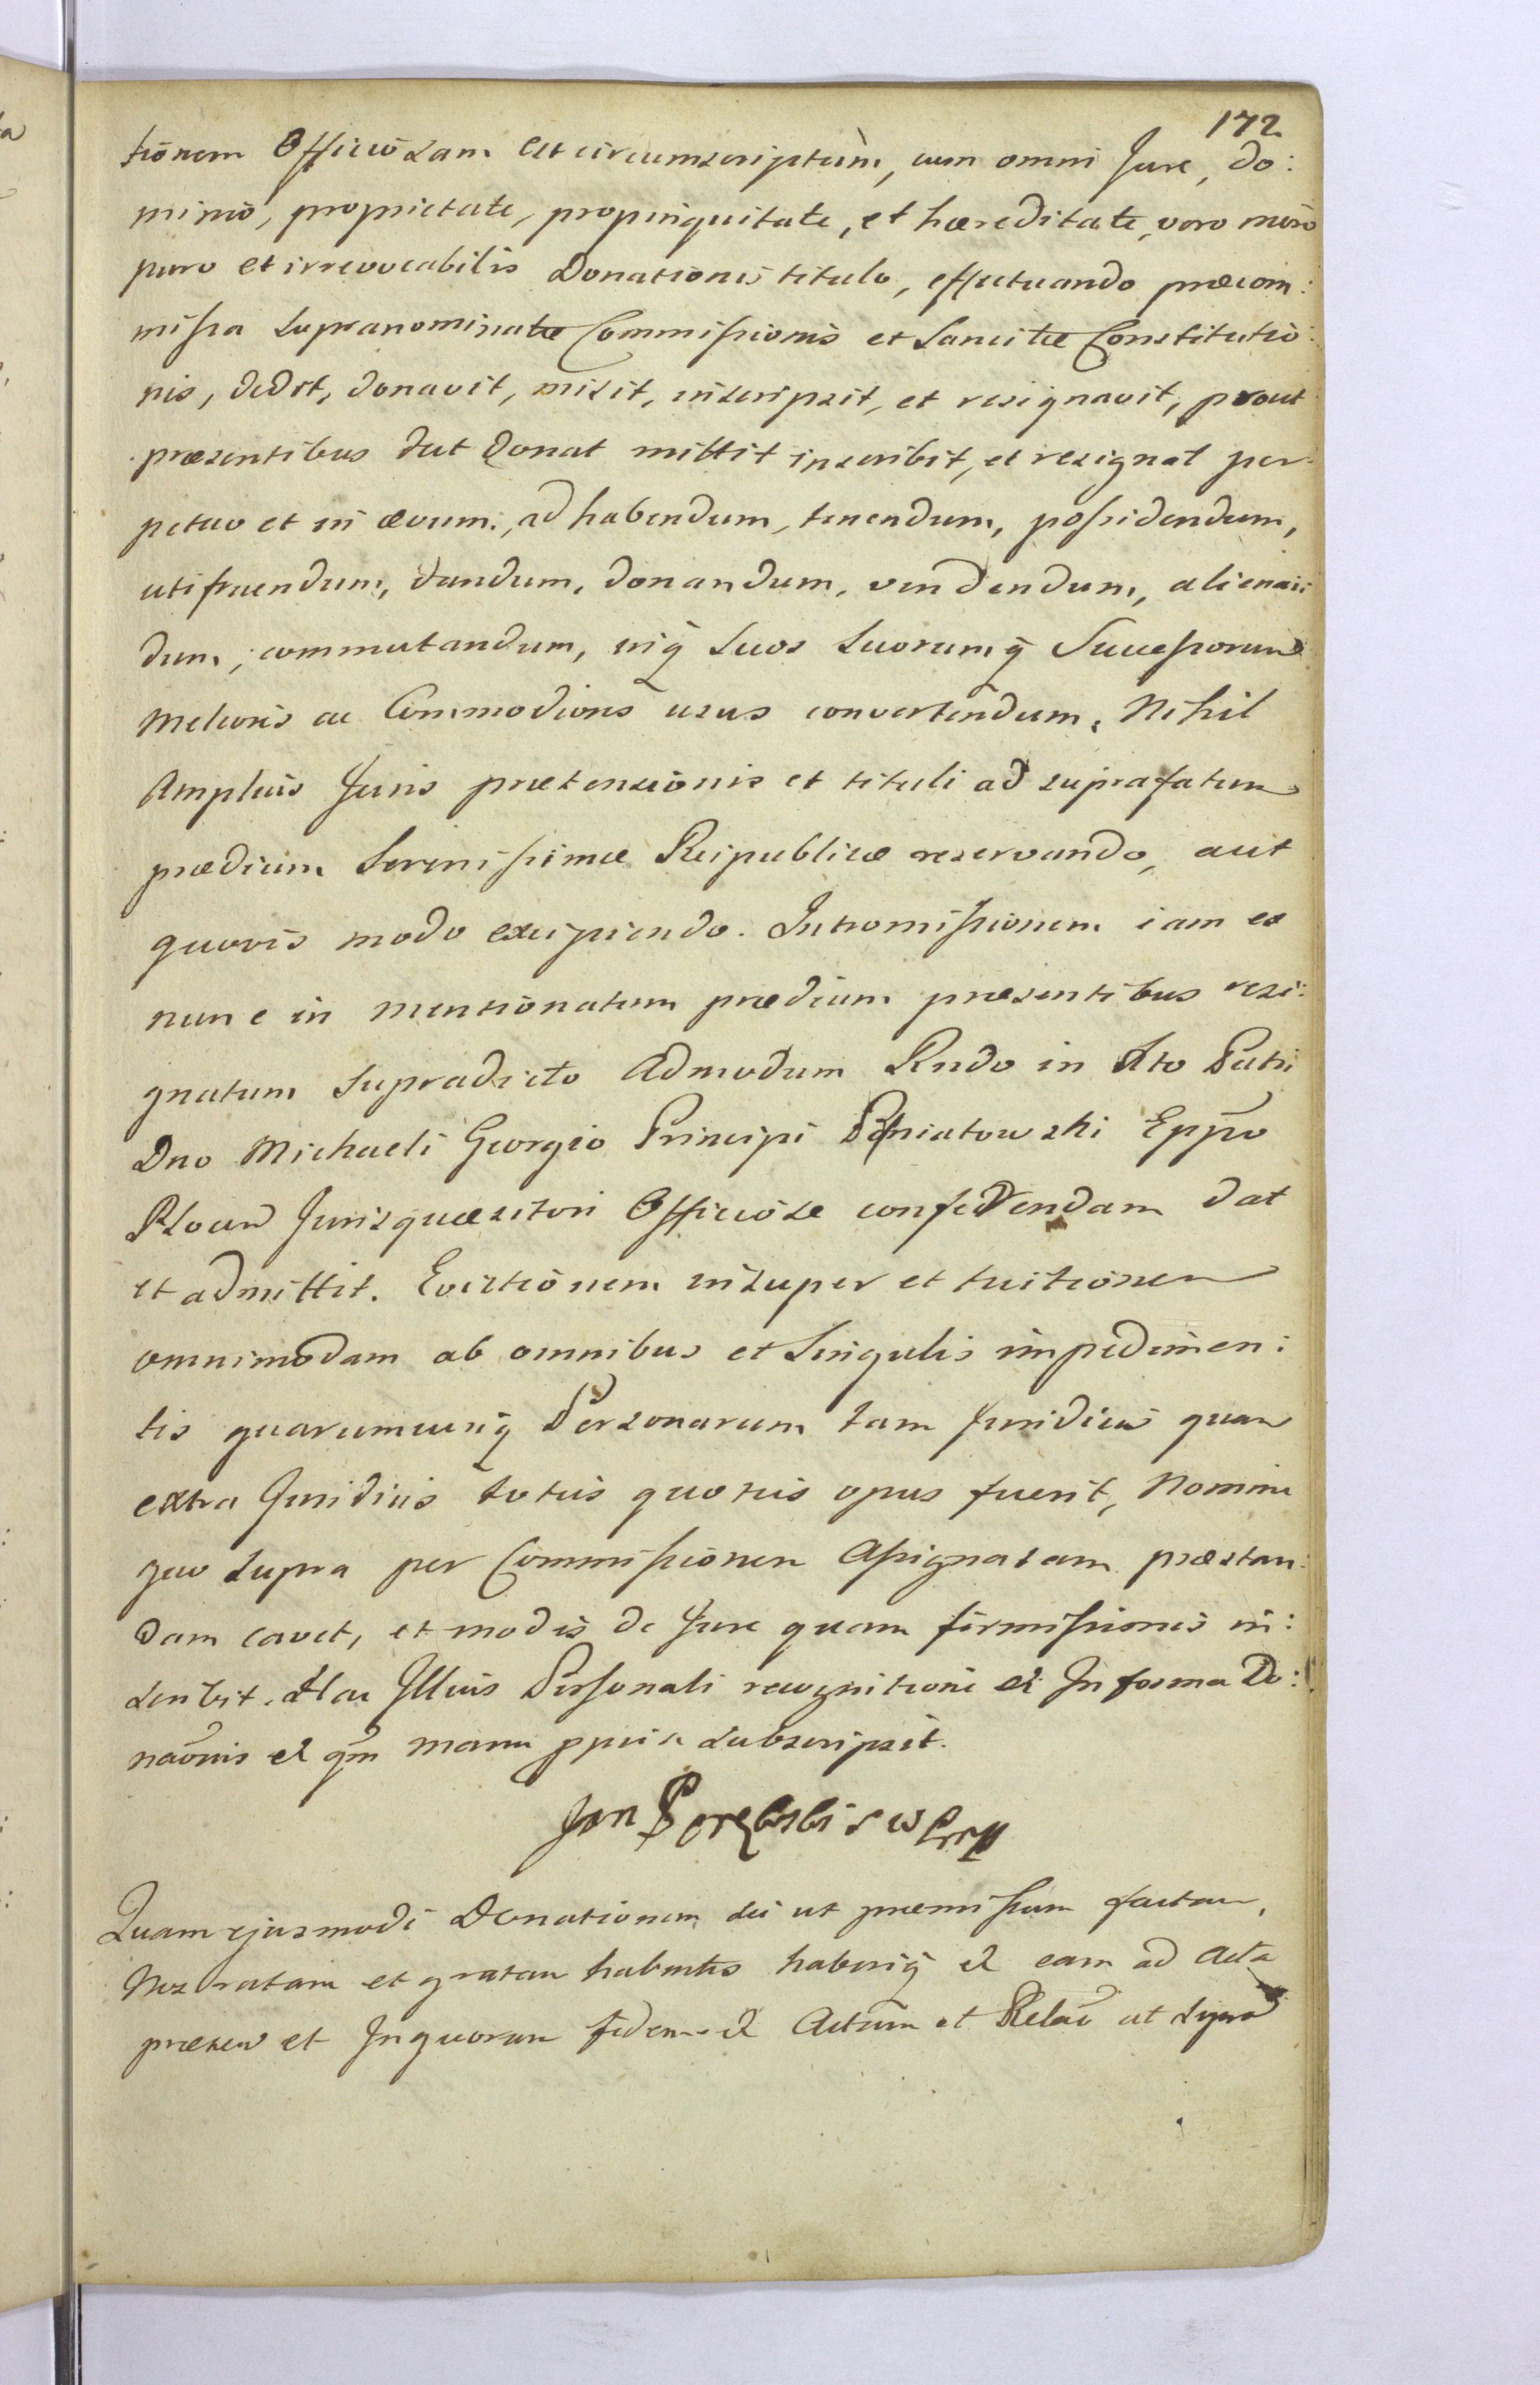 172
tionem Officiosam est circumscriptum, cum omni Jure, do:
minio, proprietate, propinquitate, et hæreditate, vero mero
puro et irrevocabilis Donationis titulo, effectuando præcom:
missa supranominatæ Commissionis et Sancitæ Constitutio:
nis, dedit, donavit, misit, inscripsit, et resignavit, prout
præsentibus dat donat mittit inscribit, et resignat per:
petuo et in ævum, ad habendum, tenendum, possidendum,
utifruendum, dandum, donandum, vendendum, alienan:
dum, commutandum, inq̃ suos suorumq̃ Successorum
Melioris ac Commodioris usus convertendum, Nihil
Amplius Juris prætensionis et tituli ad suprafatum
prædium Serenissimæ Reipublicæ reservando, aut
quovis modo excipiendo. Intromissionem iam ex
nunc in mentionatum prædium præsentibus resi:
gnatum supradicto Admodum Rndo in Xto Patri
Dno Michaeli Georgio Principi Poniatowski Eppo
Plocen Jurisquæsitori Officiose conferendam dat
et admittit. Evictionem insuper et tuitionem
omnimodam ab omnibus et singulis impedimen:
tis quarumcunq̃ Personarum tam Juridicis quam
extra Juridicis toties quoties opus fuerit, Nomine
quo supra per Commissionem Assignatam præstan:
dam cavet, et modis de Jure quam firmissimis in:
scribit. Hac Illius Personali recognitione et In forma Do:
naõnis et qm manu ppria subscripsit.
Jan
Quam ejusmodi Donationem sic ut præmissum factam,
Nos ratam et gratam habentes haberiq̃ et eam ad Acta
præsen et Inquorum fidem et Actum et Relaõ ut supra